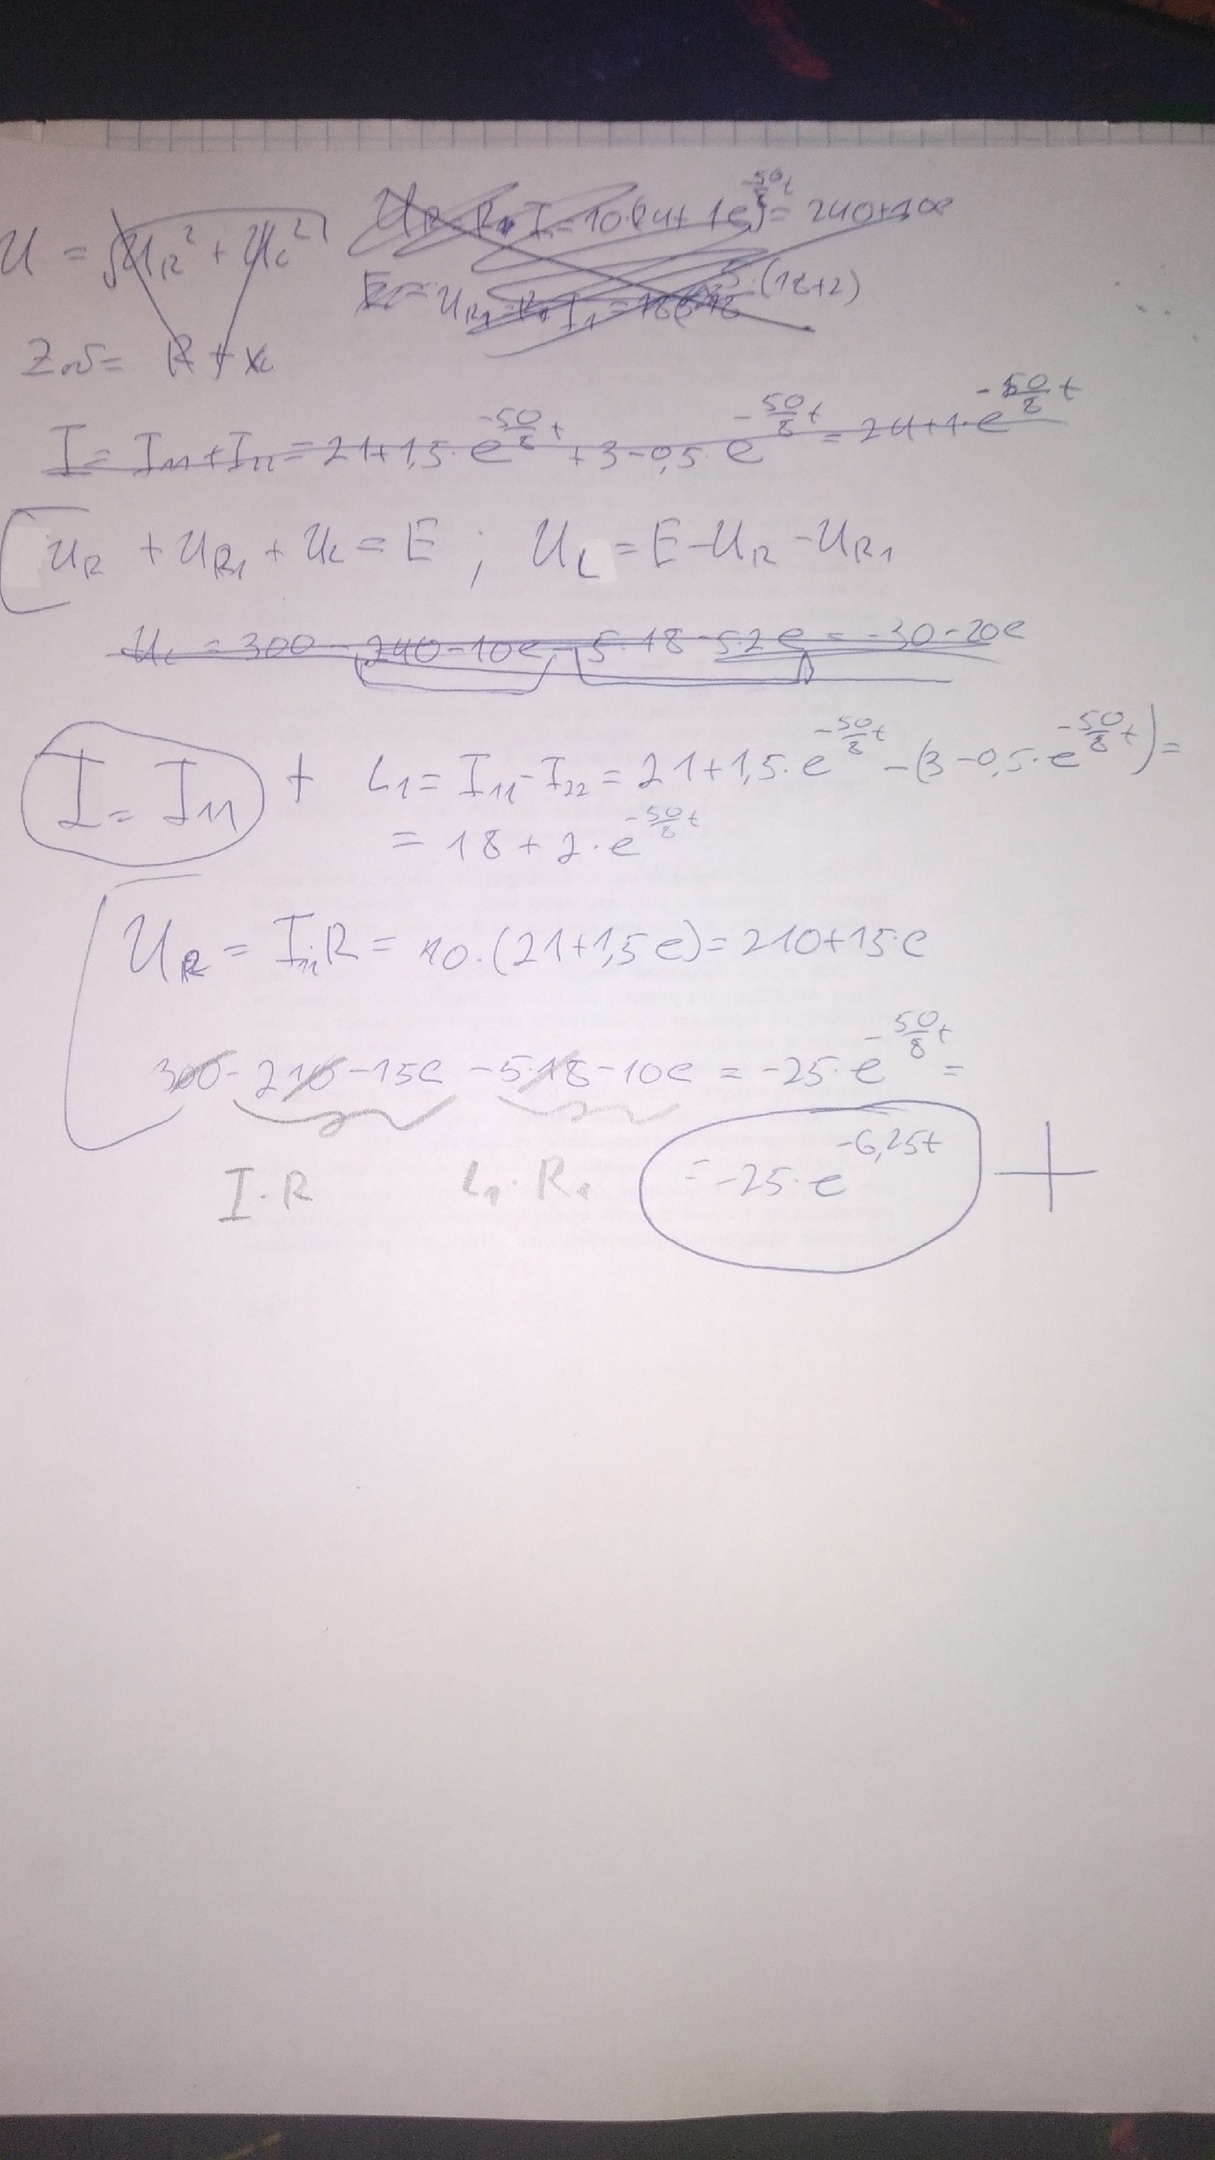 U = √(U_R² + U_L²)
U_R = R · I = 10·(24 + 1e^(-50/8 t)) = 240+10e
U_R1 = R1 I_1 = 5·(18+2)
Zоб = R + x_L
I = I_11 + I_22 = 21+1,5·e^(-50/8 t) + 3-0,5·e^(-50/8 t) = 24+1·e^(-50/8 t)
U_R + U_R1 + U_L = E ; U_L = E - U_R - U_R1
U_L = 300 - 240 - 10e - 5·18 - 5·2e = -30-20e
I = I_11 + i_1 = I_11 - I_22 = 21+1,5·e^(-50/8 t) - (3-0,5·e^(-50/8 t)) =
= 18 + 2·e^(-50/8 t)
U_R = I_11·R = 10·(21+1,5e) = 210+15·e
300 - 210 - 15e - 5·18 - 10e = -25·e^(-50/8 t) =
= -25·e^(-6,25t) +
I·R i_1·R_1